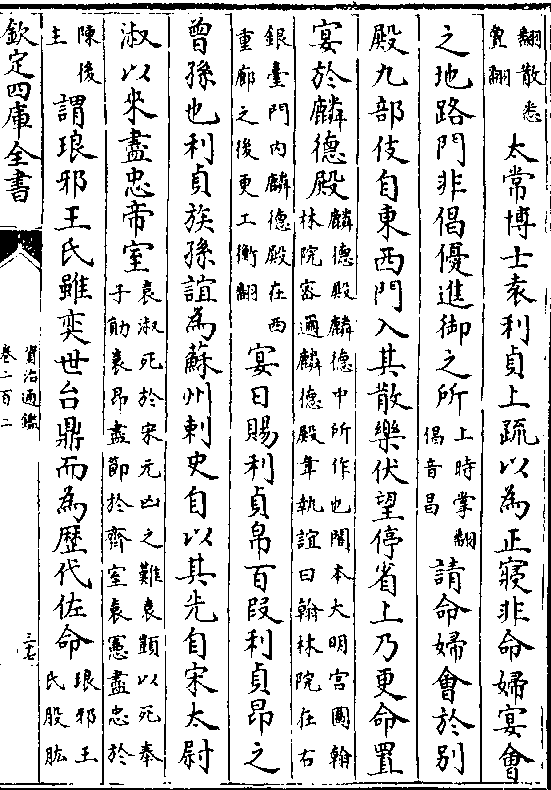 翻散悉亶翻太常博士袁利貞上疏以為正寢非命婦宴會
之地路門非倡優進御之所上時掌翻倡音昌請命婦會於別
殿九部伎自東西門入其散樂伏望停省上乃更命置
宴於麟德殿麟德殿麟德中所作也閣本大明宮圖翰林院密邇麟德殿韋執誼曰翰林院在右
銀臺門内麟德殿在西重廊之後更工衡翻宴日賜利貞帛百段利貞昂之
曾孫也利貞族孫誼為蘇州刺史自以其先自宋太尉
淑以來盡忠帝室袁淑死於宋元凶之難袁顗以死奉子勛袁昂盡節於齊室袁憲盡忠於
陳後主謂琅邪王氏雖奕世台鼎而為歷代佐命琅邪王氏股肱
欽定四庫全書
資治通鑑
卷二百二
三七